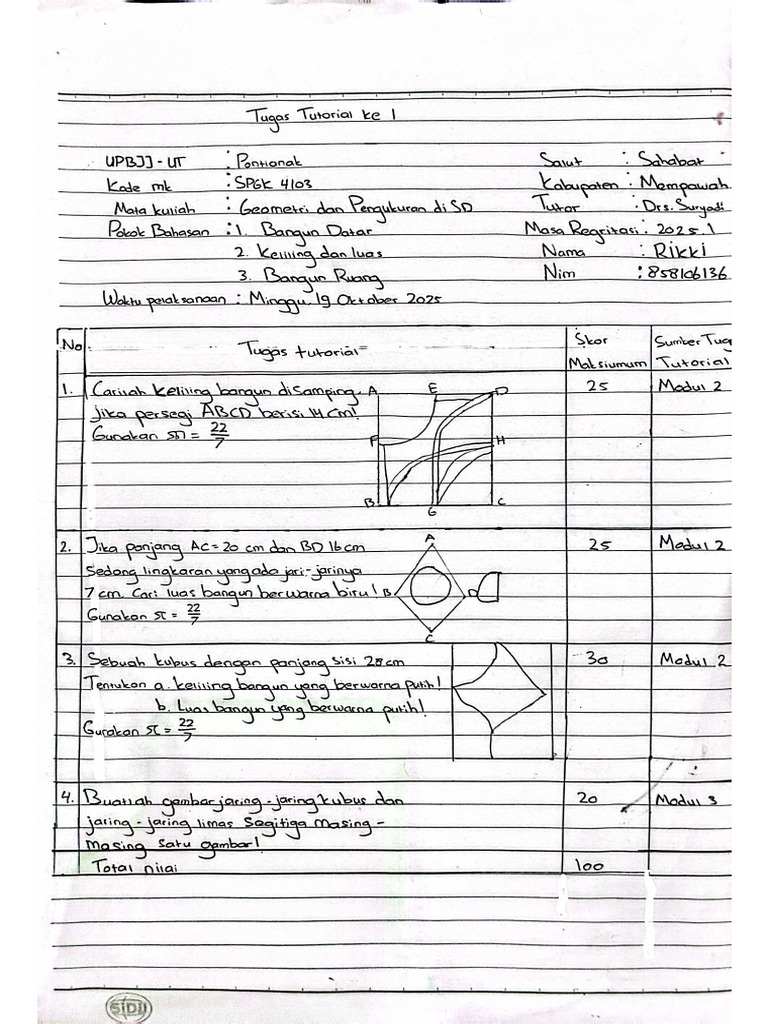 Tugas Tutorial ke 1
UPBJJ - UT : Pontianak Salut : Sahabat
Kode mk : SPGK 4103 Kabupaten : Mempawah
Mata kuliah : Geometri dan Pengukuran di SD Tutor : Drs. Suryadi
Pokok Bahasan : 1. Bangun Datar Masa Regritasi : 2025.1
2. Keliling dan luas Nama : Rikki
3. Bangun Ruang Nim : 858106136
Waktu pelaksanaan : Minggu, 19 Oktober 2025
No Tugas tutorial Skor Maksiumum Sumber Tug Tutorial
1. Carilah keliling bangun disamping. 25 Modul 2
Jika persegi ABCD berisi 14 cm!
Gunakan π = 22/7
A E D
F H
B G C
2. Jika panjang AC = 20 cm dan BD 16 cm 25 Modul 2
Sedang lingkaran yang ada jari-jarinya
7 cm. Cari luas bangun berwarna biru!
Gunakan π = 22/7
A
B D
C
3. Sebuah kubus dengan panjang sisi 28 cm 30 Modul 2
Tentukan a. keliling bangun yang berwarna putih!
b. Luas bangun yang berwarna putih!
Gunakan π = 22/7
4. Buatlah gambar jaring-jaring kubus dan 20 Modul 3
jaring-jaring limas segitiga masing-
masing satu gambar!
Total nilai 100
SiDU